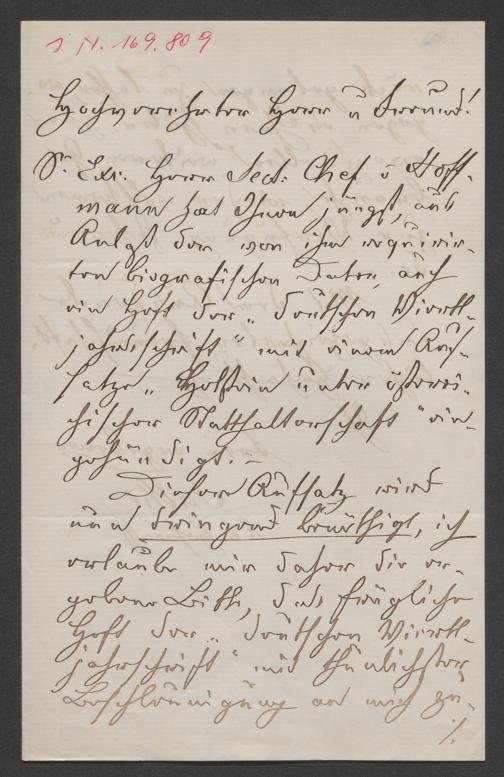 J. N. 169.809
Hochverehrter Herr u Freund!
Sr. Exz. Herr Sect: Chef v Hoff-
mann hat Ihnen jüngst, aus
Anlaß der von ihm requirir-
ten biografischen Daten, auch
ein Heft der „deutschen Viertl-
jahrschrift" mit einem Auf-
satze „Holstein unter österrei-
chischer Statthalterschaft" ein-
gehändigt. –
Dieser Aufsatz wird
nun dringend benöthigt, ich
erlaube mir daher die er-
gebene Bitte, das fragliche
Heft der „deutschen Viertl-
jahrschrift" mit thunlichster
Beschleunigung an mich zu-
./.